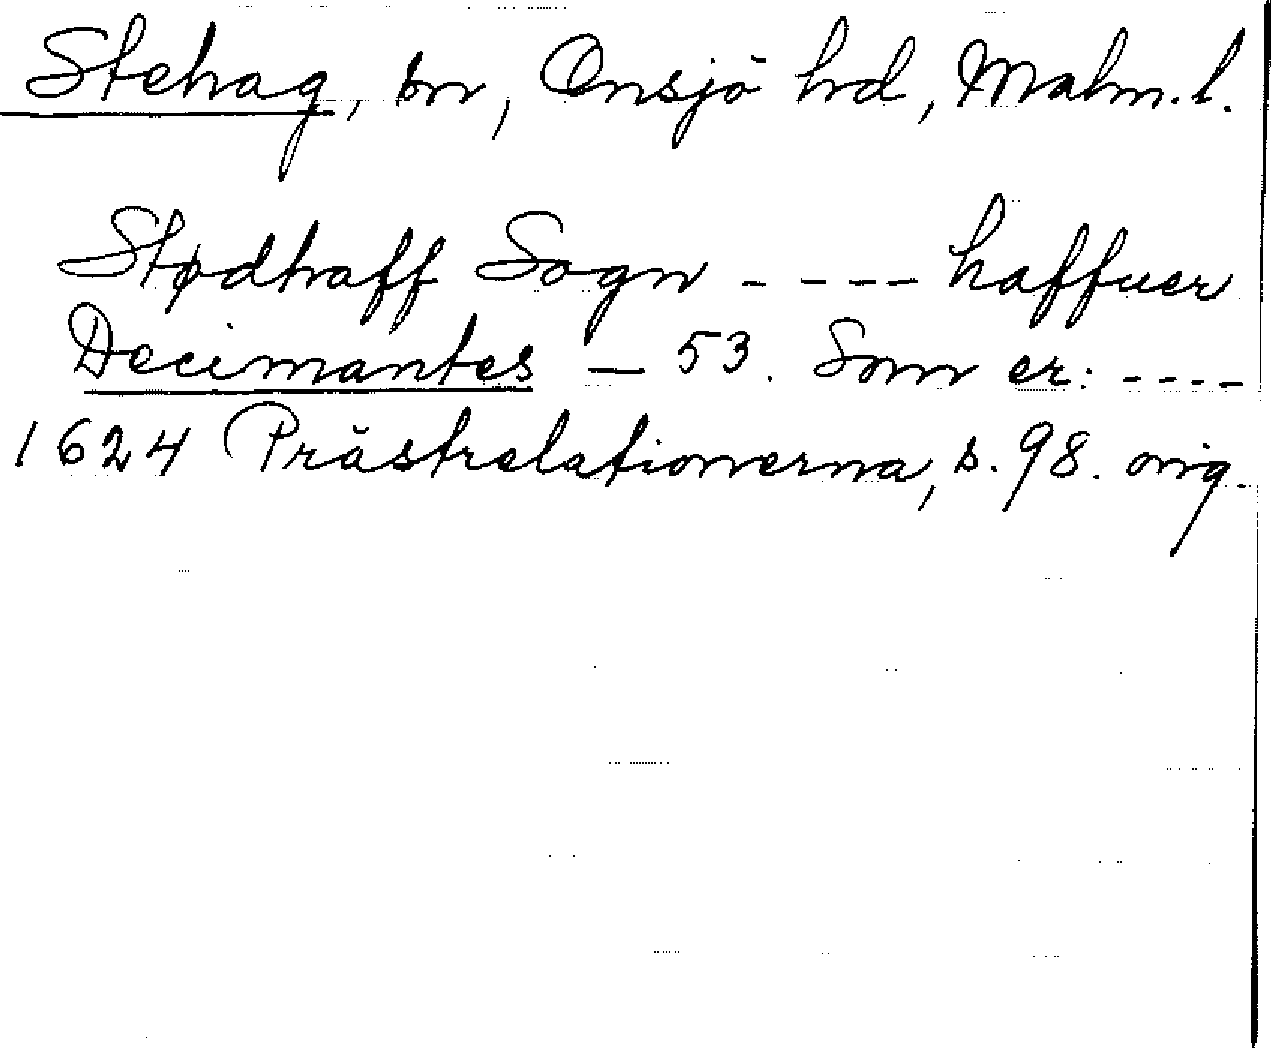 Stehag, sn, Onsjö hd, Malm. l.
Stødhaff Sogn - - - - haffuer
Decimantes — 53. Som er: - - - -
1624 Prästrelationerna, s. 98. orig.